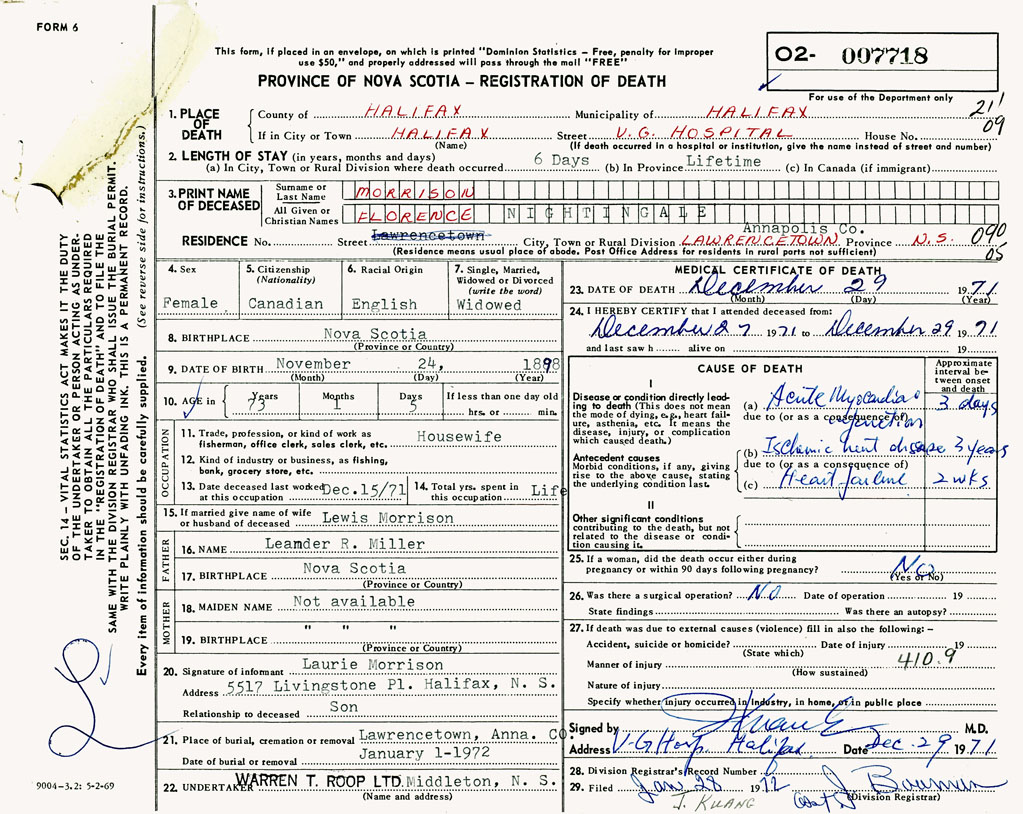 FORM 6
This form, if placed in an envelope, on which is printed "Dominion Statistics – Free, penalty for improper
use $50," and properly addressed will pass through the mail "FREE"
PROVINCE OF NOVA SCOTIA – REGISTRATION OF DEATH
02- 007718
For use of the Department only
211
09
1. PLACE OF DEATH
County of HALIFAX Municipality of HALIFAX
If in City or Town HALIFAX Street V.G. HOSPITAL House No.
(Name) (If death occurred in a hospital or institution, give the name instead of street and number)
2. LENGTH OF STAY (in years, months and days)
(a) In City, Town or Rural Division where death occurred 6 Days (b) In Province Lifetime (c) In Canada (if immigrant)
3. PRINT NAME OF DECEASED
Surname or Last Name MORRISON
All Given or Christian Names FLORENCE NIGHTINGALE
Annapolis Co.
RESIDENCE No. Street Lawrencetown City, Town or Rural Division LAWRENCETOWN Province N.S. 090
05
(Residence means usual place of abode. Post Office Address for residents in rural parts not sufficient)
4. Sex
Female
5. Citizenship
(Nationality)
Canadian
6. Racial Origin
English
7. Single, Married,
Widowed or Divorced
(write the word)
Widowed
8. BIRTHPLACE Nova Scotia
(Province or Country)
9. DATE OF BIRTH November 24, 1898
(Month) (Day) (Year)
10. AGE in Years 73 Months 1 Days 5 If less than one day old
hrs. or min.
OCCUPATION
11. Trade, profession, or kind of work as Housewife
fisherman, office clerk, sales clerk, etc.
12. Kind of industry or business, as fishing,
bank, grocery store, etc.
13. Date deceased last worked at this occupation Dec.15/71 14. Total yrs. spent in this occupation Life
15. If married give name of wife
or husband of deceased Lewis Morrison
FATHER
16. NAME Leander R. Miller
17. BIRTHPLACE Nova Scotia
(Province or Country)
MOTHER
18. MAIDEN NAME Not available
19. BIRTHPLACE " " "
(Province or Country)
20. Signature of informant Laurie Morrison
Address 5517 Livingstone Pl. Halifax, N. S.
Relationship to deceased Son
21. Place of burial, cremation or removal Lawrencetown, Anna. CO
Date of burial or removal January 1-1972
22. UNDERTAKER WARREN T. ROOP LTD. Middleton, N. S.
(Name and address)
MEDICAL CERTIFICATE OF DEATH
23. DATE OF DEATH December 29 1971
(Month) (Day) (Year)
24. I HEREBY CERTIFY that I attended deceased from:
December 27 1971 to December 29 1971
and last saw h alive on 19
CAUSE OF DEATH
Approximate
interval be-
tween onset
and death
I
Disease or condition directly lead-
ing to death (This does not mean
the mode of dying, e.g., heart fail-
ure, asthenia, etc. It means the
disease, injury, or complication
which caused death.)
(a) Acute Myocardial 3 days
due to (or as a consequence of)
infarction
Antecedent causes
Morbid conditions, if any, giving
rise to the above cause, stating
the underlying condition last.
(b) Ischemic heart disease 3 years
due to (or as a consequence of)
(c) Heart failure 2 wks
II
Other significant conditions
contributing to the death, but not
related to the disease or condi-
tion causing it.
25. If a woman, did the death occur either during
pregnancy or within 90 days following pregnancy? NO
(Yes or No)
26. Was there a surgical operation? NO Date of operation 19
State findings Was there an autopsy?
27. If death was due to external causes (violence) fill in also the following: –
Accident, suicide or homicide? Date of injury 19
(State which)
410.9
Manner of injury
(How sustained)
Nature of injury
Specify whether injury occurred in industry, in home, or in public place
Signed by M.D.
Address V-G Hosp. Halifax Date Dec. 29 1971
28. Division Registrar's Record Number
29. Filed Jan 28 1972
(Division Registrar)
J. KUANG
SEC. 14 – VITAL STATISTICS ACT MAKES IT THE DUTY
OF THE UNDERTAKER OR PERSON ACTING AS UNDER-
TAKER TO OBTAIN ALL THE PARTICULARS REQUIRED
IN THE "REGISTRATION OF DEATH" AND TO FILE THE
SAME WITH THE DIVISION REGISTRAR WHO SHALL ISSUE THE BURIAL PERMIT.
WRITE PLAINLY WITH UNFADING INK. THIS IS A PERMANENT RECORD.
Every item of information should be carefully supplied. (See reverse side for instructions.)
9004-3.2: 5-2-69